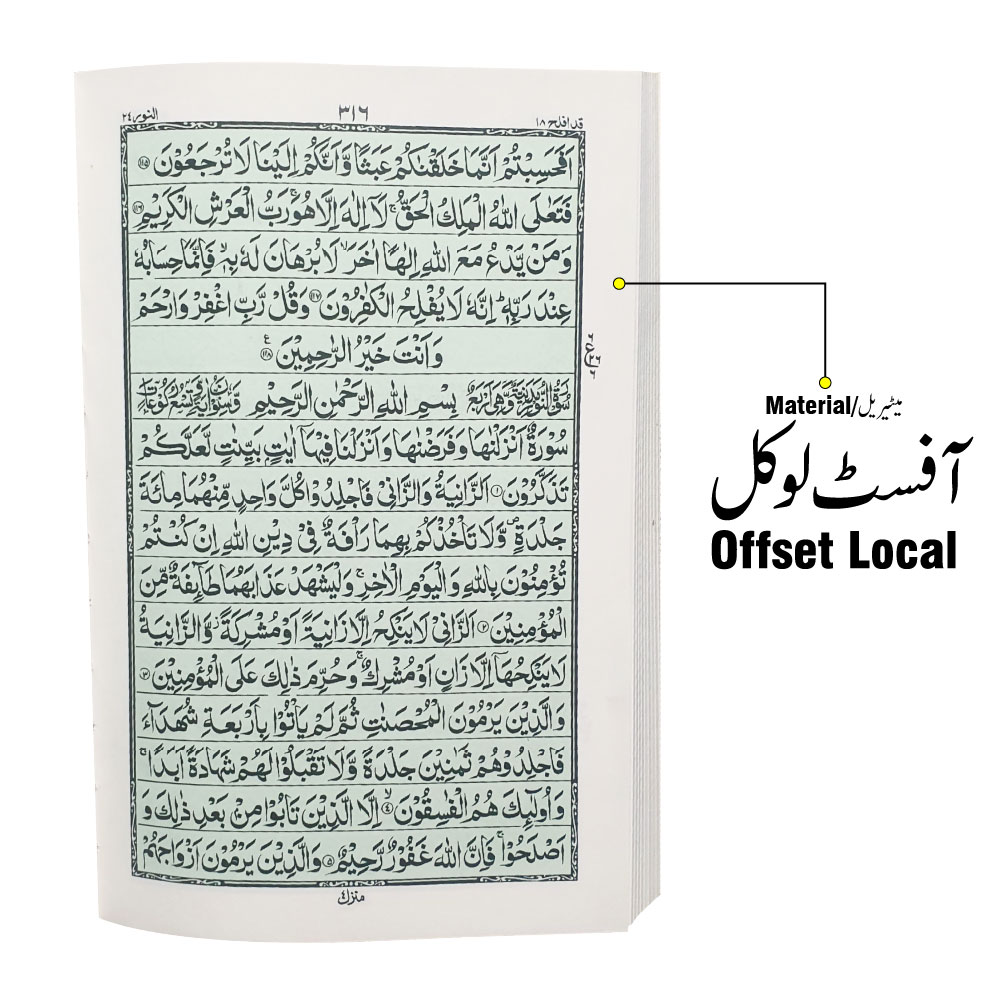 النور ٢٤
٣١٦
قد افلح ١٨
اَفَحَسِبْتُمْ اَنَّمَا خَلَقْنٰكُمْ عَبَثًا وَّاَنَّكُمْ اِلَيْنَا لَا تُرْجَعُوْنَ ۝۱۱۵
فَتَعٰلَى اللّٰهُ الْمَلِكُ الْحَقُّ ۚ لَآ اِلٰهَ اِلَّا هُوَ رَبُّ الْعَرْشِ الْكَرِيْمِ ۝۱۱۶
وَمَنْ يَّدْعُ مَعَ اللّٰهِ اِلٰهًا اٰخَرَ ۙ لَا بُرْهَانَ لَهٗ بِهٖ ۙ فَاِنَّمَا حِسَابُهٗ
عِنْدَ رَبِّهٖ ؕ اِنَّهٗ لَا يُفْلِحُ الْكٰفِرُوْنَ ۝۱۱۷ وَقُلْ رَّبِّ اغْفِرْ وَارْحَمْ
وَاَنْتَ خَيْرُ الرّٰحِمِيْنَ ۝۱۱۸ ع
بِسْمِ اللّٰهِ الرَّحْمٰنِ الرَّحِيْمِ
سُوْرَةٌ اَنْزَلْنٰهَا وَفَرَضْنٰهَا وَاَنْزَلْنَا فِيْهَآ اٰيٰتٍۭ بَيِّنٰتٍ لَّعَلَّكُمْ
تَذَكَّرُوْنَ ۝۱ اَلزَّانِيَةُ وَالزَّانِيْ فَاجْلِدُوْا كُلَّ وَاحِدٍ مِّنْهُمَا مِائَةَ
جَلْدَةٍ ۪ وَّلَا تَاْخُذْكُمْ بِهِمَا رَاْفَةٌ فِيْ دِيْنِ اللّٰهِ اِنْ كُنْتُمْ
تُؤْمِنُوْنَ بِاللّٰهِ وَالْيَوْمِ الْاٰخِرِ ۚ وَلْيَشْهَدْ عَذَابَهُمَا طَآئِفَةٌ مِّنَ
الْمُؤْمِنِيْنَ ۝۲ اَلزَّانِيْ لَا يَنْكِحُ اِلَّا زَانِيَةً اَوْ مُشْرِكَةً ؗ وَّالزَّانِيَةُ
لَا يَنْكِحُهَآ اِلَّا زَانٍ اَوْ مُشْرِكٌ ۚ وَحُرِّمَ ذٰلِكَ عَلَى الْمُؤْمِنِيْنَ ۝۳
وَالَّذِيْنَ يَرْمُوْنَ الْمُحْصَنٰتِ ثُمَّ لَمْ يَاْتُوْا بِاَرْبَعَةِ شُهَدَآءَ
فَاجْلِدُوْهُمْ ثَمٰنِيْنَ جَلْدَةً وَّلَا تَقْبَلُوْا لَهُمْ شَهَادَةً اَبَدًا ۚ
وَاُولٰٓئِكَ هُمُ الْفٰسِقُوْنَ ۝۴ ۙ اِلَّا الَّذِيْنَ تَابُوْا مِنْۢ بَعْدِ ذٰلِكَ وَ
اَصْلَحُوْا ۚ فَاِنَّ اللّٰهَ غَفُوْرٌ رَّحِيْمٌ ۝۵ وَالَّذِيْنَ يَرْمُوْنَ اَزْوَاجَهُمْ
منزل ٤
Material/میٹیریل
آفسٹ لوکل
Offset Local